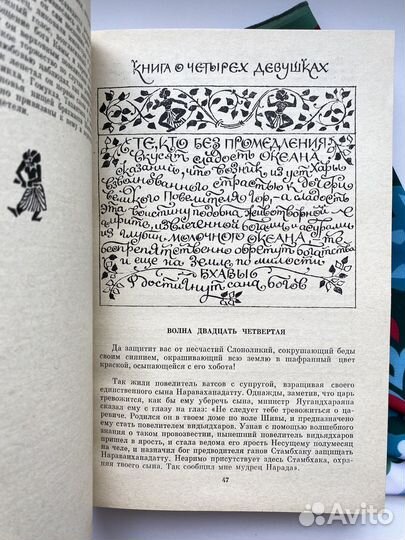 КНИГА О ЧЕТЫРЕХ ДЕВУШКАХ
ТЕ, КТО БЕЗ ПРОМЕДЛЕНИЯ
вкусят сладость ОКЕАНА
сказаний, что возник из уст Хары,
взволнованного страстью к дочери
великого Повелителя гор,—а сладость
эта воистину подобна животворной
амрите, извлеченной богами и асурами
из глубин МОЛОЧНОГО ОКЕАНА,—те
беспрепятственно обретут богатства
и еще на Земле по милости
БХАВЫ
достигнут сана богов
ВОЛНА ДВАДЦАТЬ ЧЕТВЕРТАЯ
Да защитит вас от несчастий Слоноликий, сокрушающий беды
своим сиянием, окрашивающий всю землю в шафранный цвет
краской, осыпающейся с его хобота!
Так жили повелитель ватсов с супругой, взращивая своего
единственного сына Нараваханадатту. Однажды, заметив, что царь
тревожится, как бы ему уберечь сына, министр Яугандхараяна
сказал ему с глазу на глаз: «Не следует тебе тревожиться о ца-
ревиче. Родился он в твоем доме по воле Шивы, и предназначено
ему стать повелителем видьядхаров. Узнав с помощью волшебного
знания о таком провозвестии, нынешний повелитель видьядхаров
пришел в ярость, и стала ведома его ярость Несущему полумесяц
на челе, и назначил бог предводителя ганов Стамбхаку защищать
Нараваханадатту. Незримо присутствует здесь Стамбхака, охра-
няя твоего сына. Так сообщил мне мудрец Нарада».
47
Avito